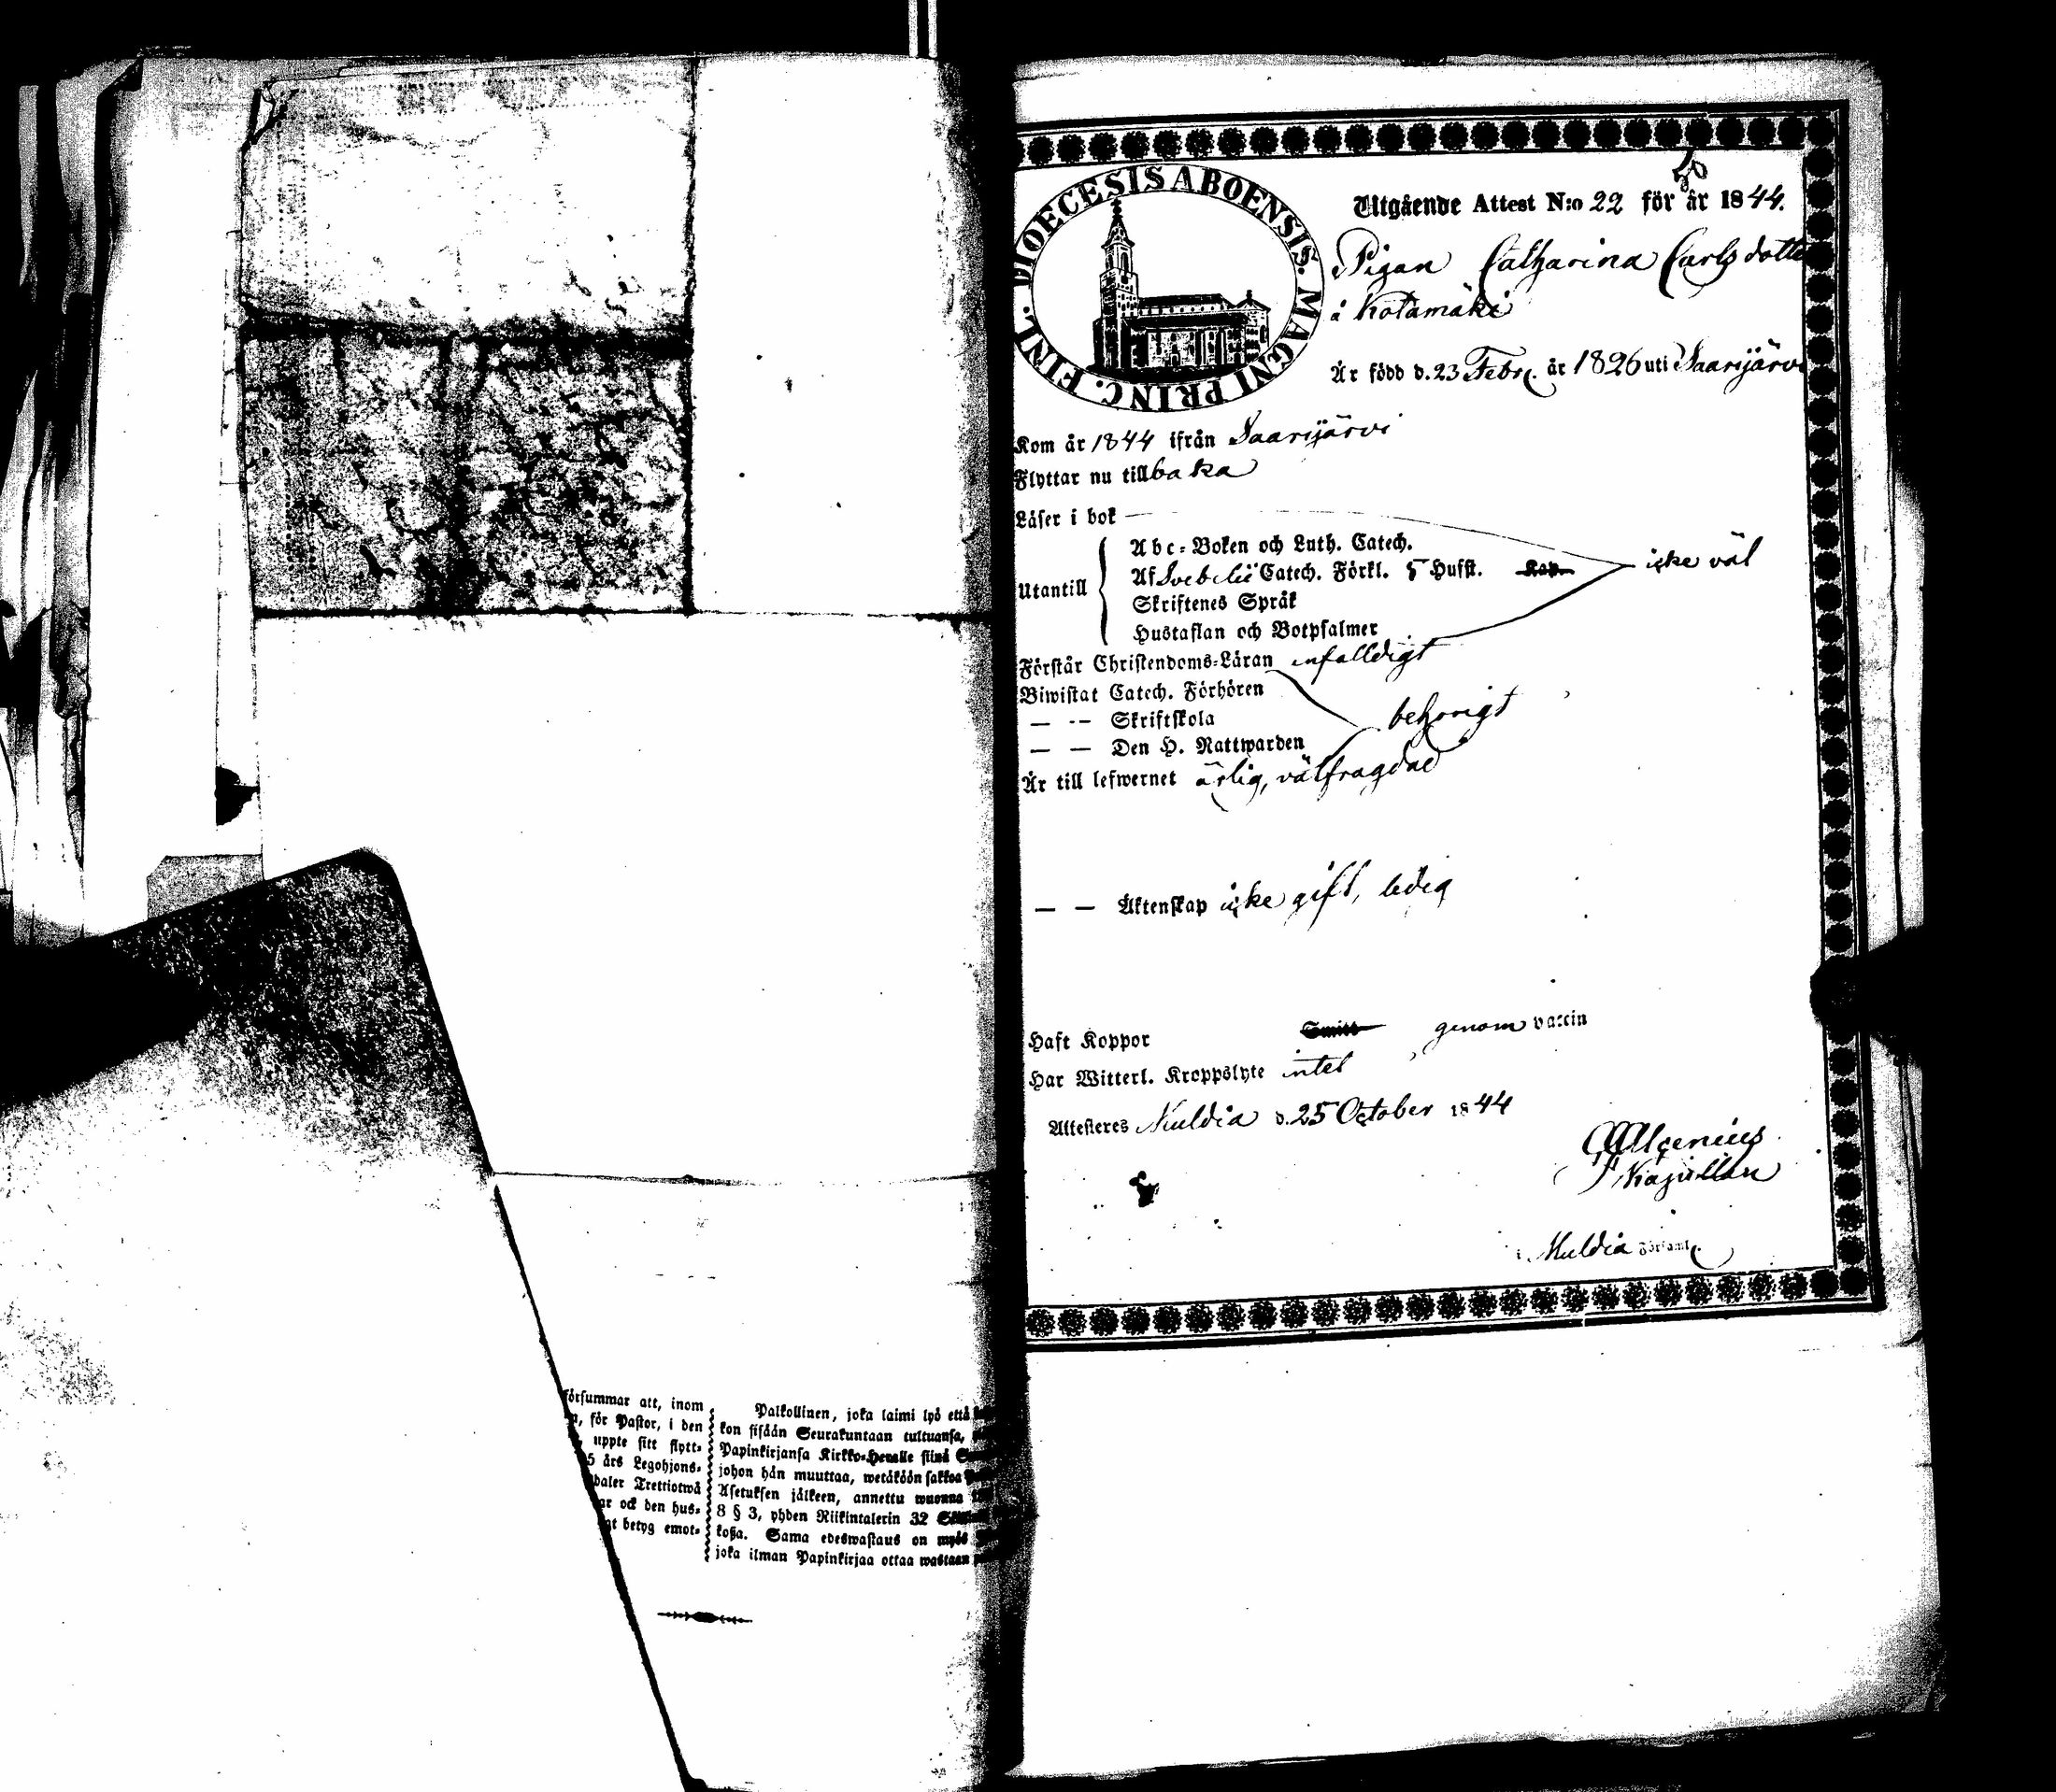 försummar att, inom
för Pastor, i den
uppte sitt flytt-
5 års Legohjons-
daler Trettiotwå
ock den hus-
betyg emot-
Palkollinen, joka laimi lyö että
kon sisään Seurakuntaan tultuansa,
Papinkirjansa Kirkko-Herralle siinä
johon hän muuttaa, wetäköön sakkoa
Asetuksen jälkeen, annettu wuonna
8 § 3, yhden Riikintalerin 32
koßa. Sama edeswastaus on myös
joka ilman Papinkirjaa ottaa wastaan
DIOECESIS ABOENSIS. MAGNI PRINC. FINL.
Utgående Attest N:o 22 för år 1844.
Pigan Catharina Carlsdotte
å Kotamäki
Är född d. 23 Febr. år 1826 uti Saarijärvi
Kom år 1844 ifrån Saarijärvi
Flyttar nu tillbaka
Läser i bok
Utantill
Abc-Boken och Luth. Catech.
Af Svebelii Catech. Förkl. 5 Hufst. Kap. icke väl
Skriftenes Språk
Hustaflan och Botpsalmer
Förstår Christendoms-Läran enfalldigt
Biwistat Catech. Förhören
— — Skriftskola behörigt
— — Den H. Nattwarden
Är till lefwernet ärlig, välfrägdad
— — Äktenskap icke gift, ledig
Haft Koppor Smitt genom vaccin
Har Witterl. Kroppslyte intet
Attesteres Muldia d. 25 October 1844
i Muldia Församl.